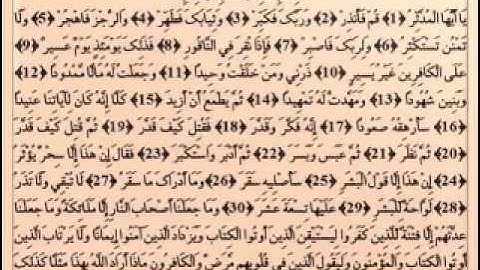 يَا أَيُّهَا الْمُدَّثِّرُ ﴿1﴾ قُمْ فَأَنذِرْ ﴿2﴾ وَرَبَّكَ فَكَبِّرْ ﴿3﴾ وَثِيَابَكَ فَطَهِّرْ ﴿4﴾ وَالرُّجْزَ فَاهْجُرْ ﴿5﴾ وَلَا
تَمْنُن تَسْتَكْثِرُ ﴿6﴾ وَلِرَبِّكَ فَاصْبِرْ ﴿7﴾ فَإِذَا نُقِرَ فِي النَّاقُورِ ﴿8﴾ فَذَلِكَ يَوْمَئِذٍ يَوْمٌ عَسِيرٌ ﴿9﴾
عَلَى الْكَافِرِينَ غَيْرُ يَسِيرٍ ﴿10﴾ ذَرْنِي وَمَنْ خَلَقْتُ وَحِيدًا ﴿11﴾ وَجَعَلْتُ لَهُ مَالًا مَّمْدُودًا ﴿12﴾
وَبَنِينَ شُهُودًا ﴿13﴾ وَمَهَّدتُّ لَهُ تَمْهِيدًا ﴿14﴾ ثُمَّ يَطْمَعُ أَنْ أَزِيدَ ﴿15﴾ كَلَّا إِنَّهُ كَانَ لِآيَاتِنَا عَنِيدًا
﴿16﴾ سَأُرْهِقُهُ صَعُودًا ﴿17﴾ إِنَّهُ فَكَّرَ وَقَدَّرَ ﴿18﴾ فَقُتِلَ كَيْفَ قَدَّرَ ﴿19﴾ ثُمَّ قُتِلَ كَيْفَ قَدَّرَ
﴿20﴾ ثُمَّ نَظَرَ ﴿21﴾ ثُمَّ عَبَسَ وَبَسَرَ ﴿22﴾ ثُمَّ أَدْبَرَ وَاسْتَكْبَرَ ﴿23﴾ فَقَالَ إِنْ هَذَا إِلَّا سِحْرٌ يُؤْثَرُ
﴿24﴾ إِنْ هَذَا إِلَّا قَوْلُ الْبَشَرِ ﴿25﴾ سَأُصْلِيهِ سَقَرَ ﴿26﴾ وَمَا أَدْرَاكَ مَا سَقَرُ ﴿27﴾ لَا تُبْقِي وَلَا تَذَرُ
﴿28﴾ لَوَّاحَةٌ لِّلْبَشَرِ ﴿29﴾ عَلَيْهَا تِسْعَةَ عَشَرَ ﴿30﴾ وَمَا جَعَلْنَا أَصْحَابَ النَّارِ إِلَّا مَلَائِكَةً وَمَا جَعَلْنَا
عِدَّتَهُمْ إِلَّا فِتْنَةً لِّلَّذِينَ كَفَرُوا لِيَسْتَيْقِنَ الَّذِينَ أُوتُوا الْكِتَابَ وَيَزْدَادَ الَّذِينَ آمَنُوا إِيمَانًا وَلَا يَرْتَابَ الَّذِينَ
أُوتُوا الْكِتَابَ وَالْمُؤْمِنُونَ وَلِيَقُولَ الَّذِينَ فِي قُلُوبِهِم مَّرَضٌ وَالْكَافِرُونَ مَاذَا أَرَادَ اللَّهُ بِهَذَا مَثَلًا كَذَلِكَ